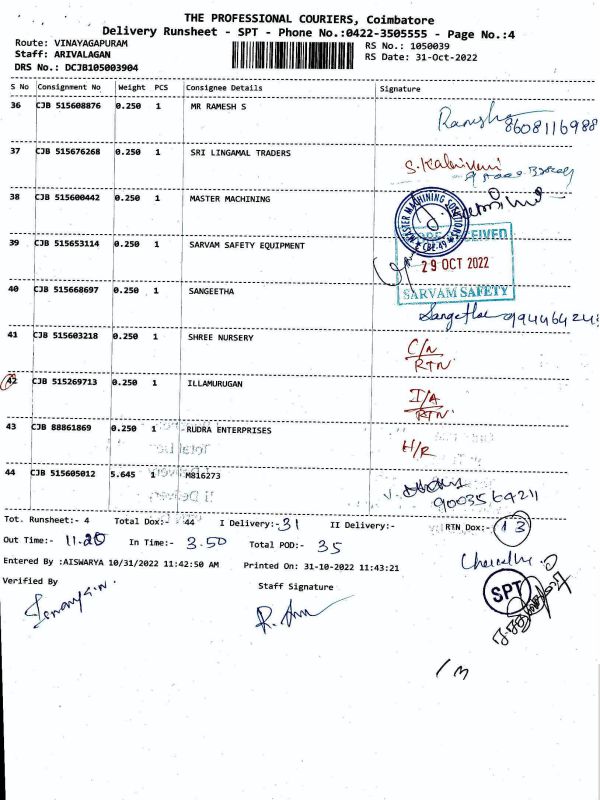 THE PROFESSIONAL COURIERS, Coimbatore
Delivery Runsheet - SPT - Phone No.:0422-3505555 - Page No.:4
Route: VINAYAGAPURAM
Staff: ARIVALAGAN
DRS No.: DCJB105003904
RS No.: 1050039
RS Date: 31-Oct-2022
S No Consignment No Weight PCS Consignee Details Signature
36 CJB 515608876 0.250 1 MR RAMESH S
Ramesh 8608116988
37 CJB 515676268 0.250 1 SRI LINGAMAL TRADERS
38 CJB 515600442 0.250 1 MASTER MACHINING
MASTER MACHINING SOLUTIONS
CBE-49
39 CJB 515653114 0.250 1 SARVAM SAFETY EQUIPMENT
29 OCT 2022
SARVAM SAFETY
40 CJB 515668697 0.250 1 SANGEETHA
41 CJB 515603218 0.250 1 SHREE NURSERY
C/N
RTN
42 CJB 515269713 0.250 1 ILLAMURUGAN
I/A
RTN
43 CJB 88861869 0.250 1 RUDRA ENTERPRISES
H/R
44 CJB 515605012 5.645 1 M816273
9003564211
Tot. Runsheet:- 4 Total Dox:- 44 I Delivery:- 31 II Delivery:- RTN Dox:- 13
Out Time:- 11.20 In Time:- 3.50 Total POD:- 35
Entered By :AISWARYA 10/31/2022 11:42:50 AM Printed On: 31-10-2022 11:43:21
Verified By
Staff Signature
SPT